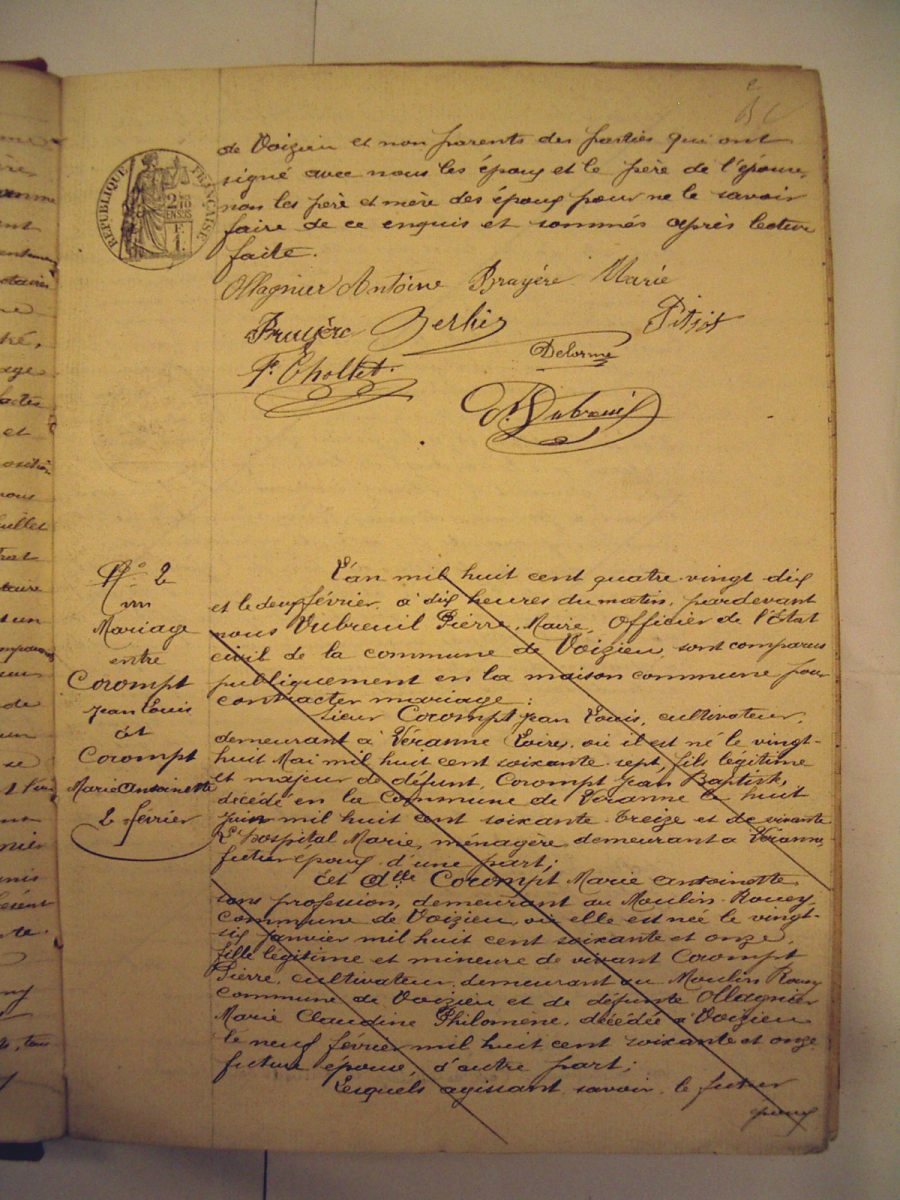 de Voizieu et non parents des parties qui ont
signé avec nous les époux et le père de l'épouse,
non les père et mère des époux pour ne le savoir
faire de ce enquis et sommés après lecture
faite.
RÉPUBLIQUE FRANÇAISE
Ollagnier Antoine Bruyère Marie
Bruyère
F. Chollet
Delorme
Dubreuil
N° 2
un
Mariage
entre
Corompt
Jean Louis
et
Corompt
Marie Antoinette
2 février
L'an mil huit cent quatre-vingt dix
et le deux février, à dix heures du matin, pardevant
nous Dubreuil Pierre, Maire, Officier de l'État
civil de la commune de Voizieu, sont comparus
publiquement en la maison commune pour
contracter mariage:
Sieur Corompt Jean Louis, cultivateur,
demeurant à Véranne Loire, où il est né le vingt-
huit Mai mil huit cent soixante-sept, fils légitime
et majeur de défunt, Corompt Jean Baptiste,
décédé en la Commune de Véranne le huit
juin mil huit cent soixante-treize et de vivante
L'hospital Marie, ménagère demeurant à Véranne,
futur époux d'une part;
Et Dlle Corompt Marie Antoinette
sans profession, demeurant au Moulin-Rouey,
commune de Voizieu, où elle est née le vingt-
six janvier mil huit cent soixante et onze,
fille légitime et mineure de vivant Corompt
Pierre, cultivateur, demeurant au Moulin Rouey
commune de Voizieu et de défunte Ollagnier
Marie Claudine Philomène, décédée à Voizieu
le neuf février mil huit cent soixante et onze
future épouse, d'autre part;
Lesquels agissant savoir, le futur
époux